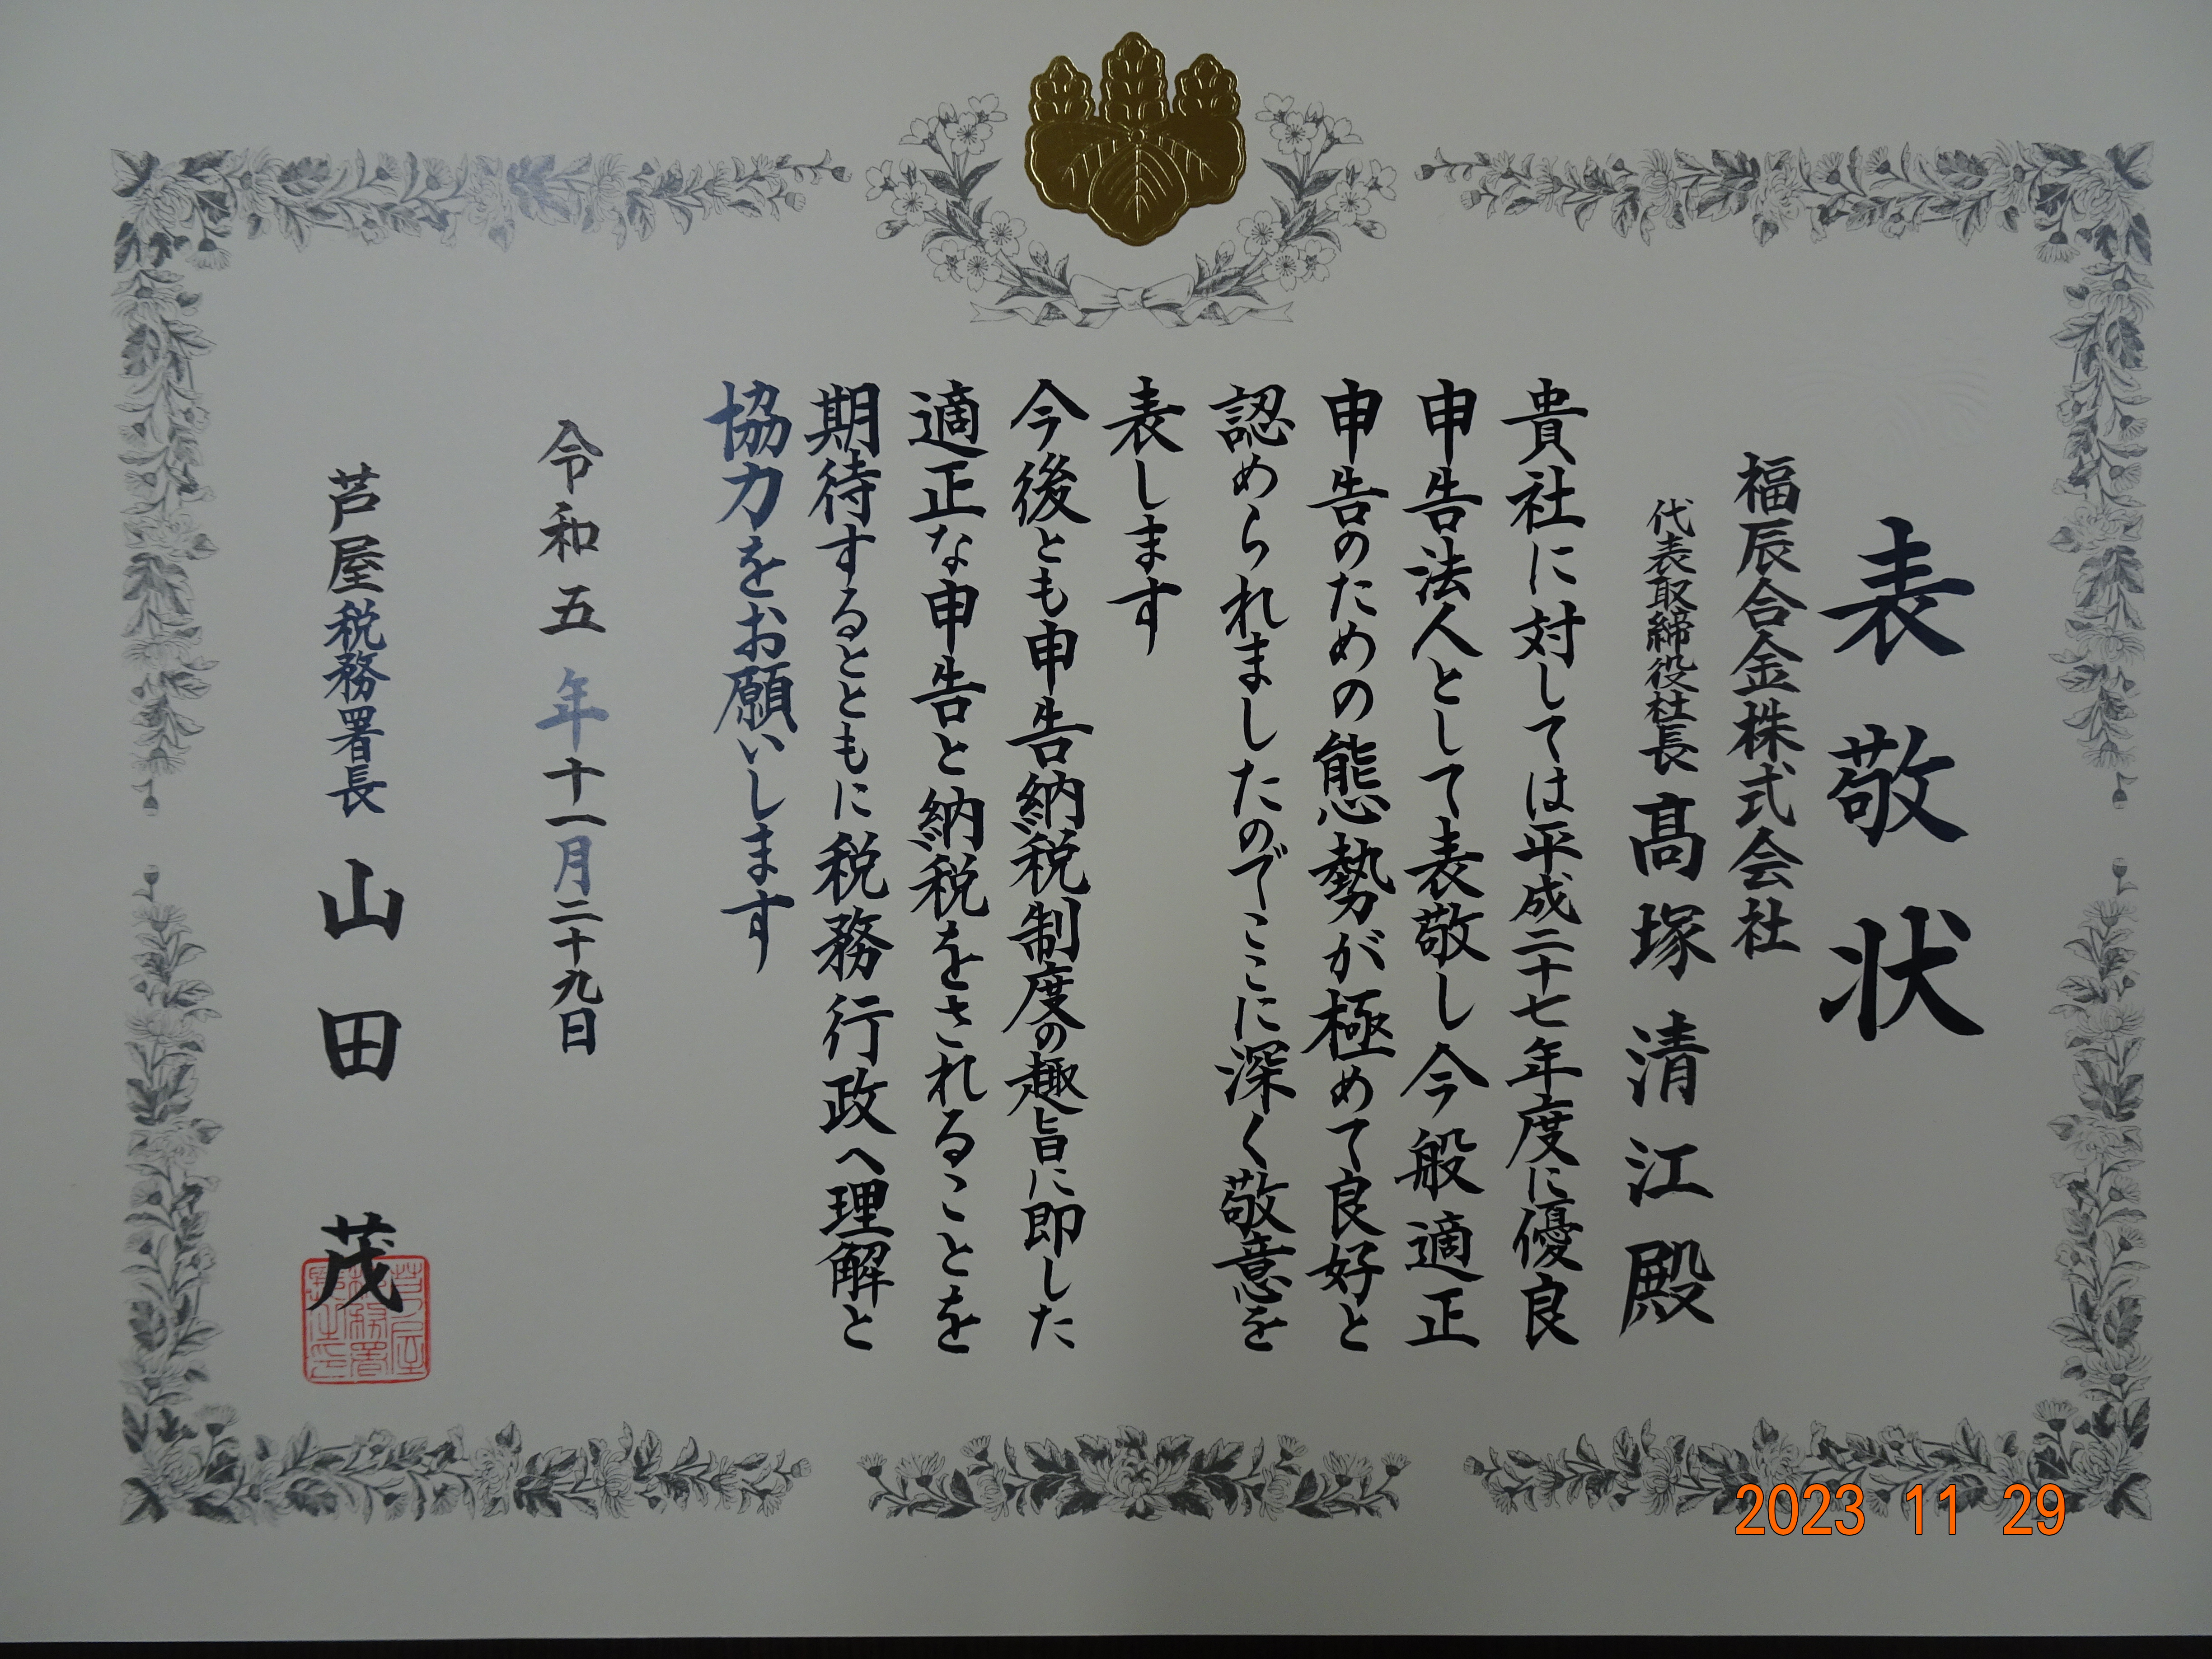 表敬状
福辰合金株式会社
代表取締役社長 髙塚清江殿
貴社に対しては平成二十七年度に優良
申告法人として表敬し今般適正
申告のための態勢が極めて良好と
認められましたのでここに深く敬意を
表します
今後とも申告納税制度の趣旨に即した
適正な申告と納税をされることを
期待するとともに税務行政へ理解と
協力をお願いします
令和五年十一月二十九日
芦屋税務署長 山田茂
芦屋税務署長之印
2023 11 29